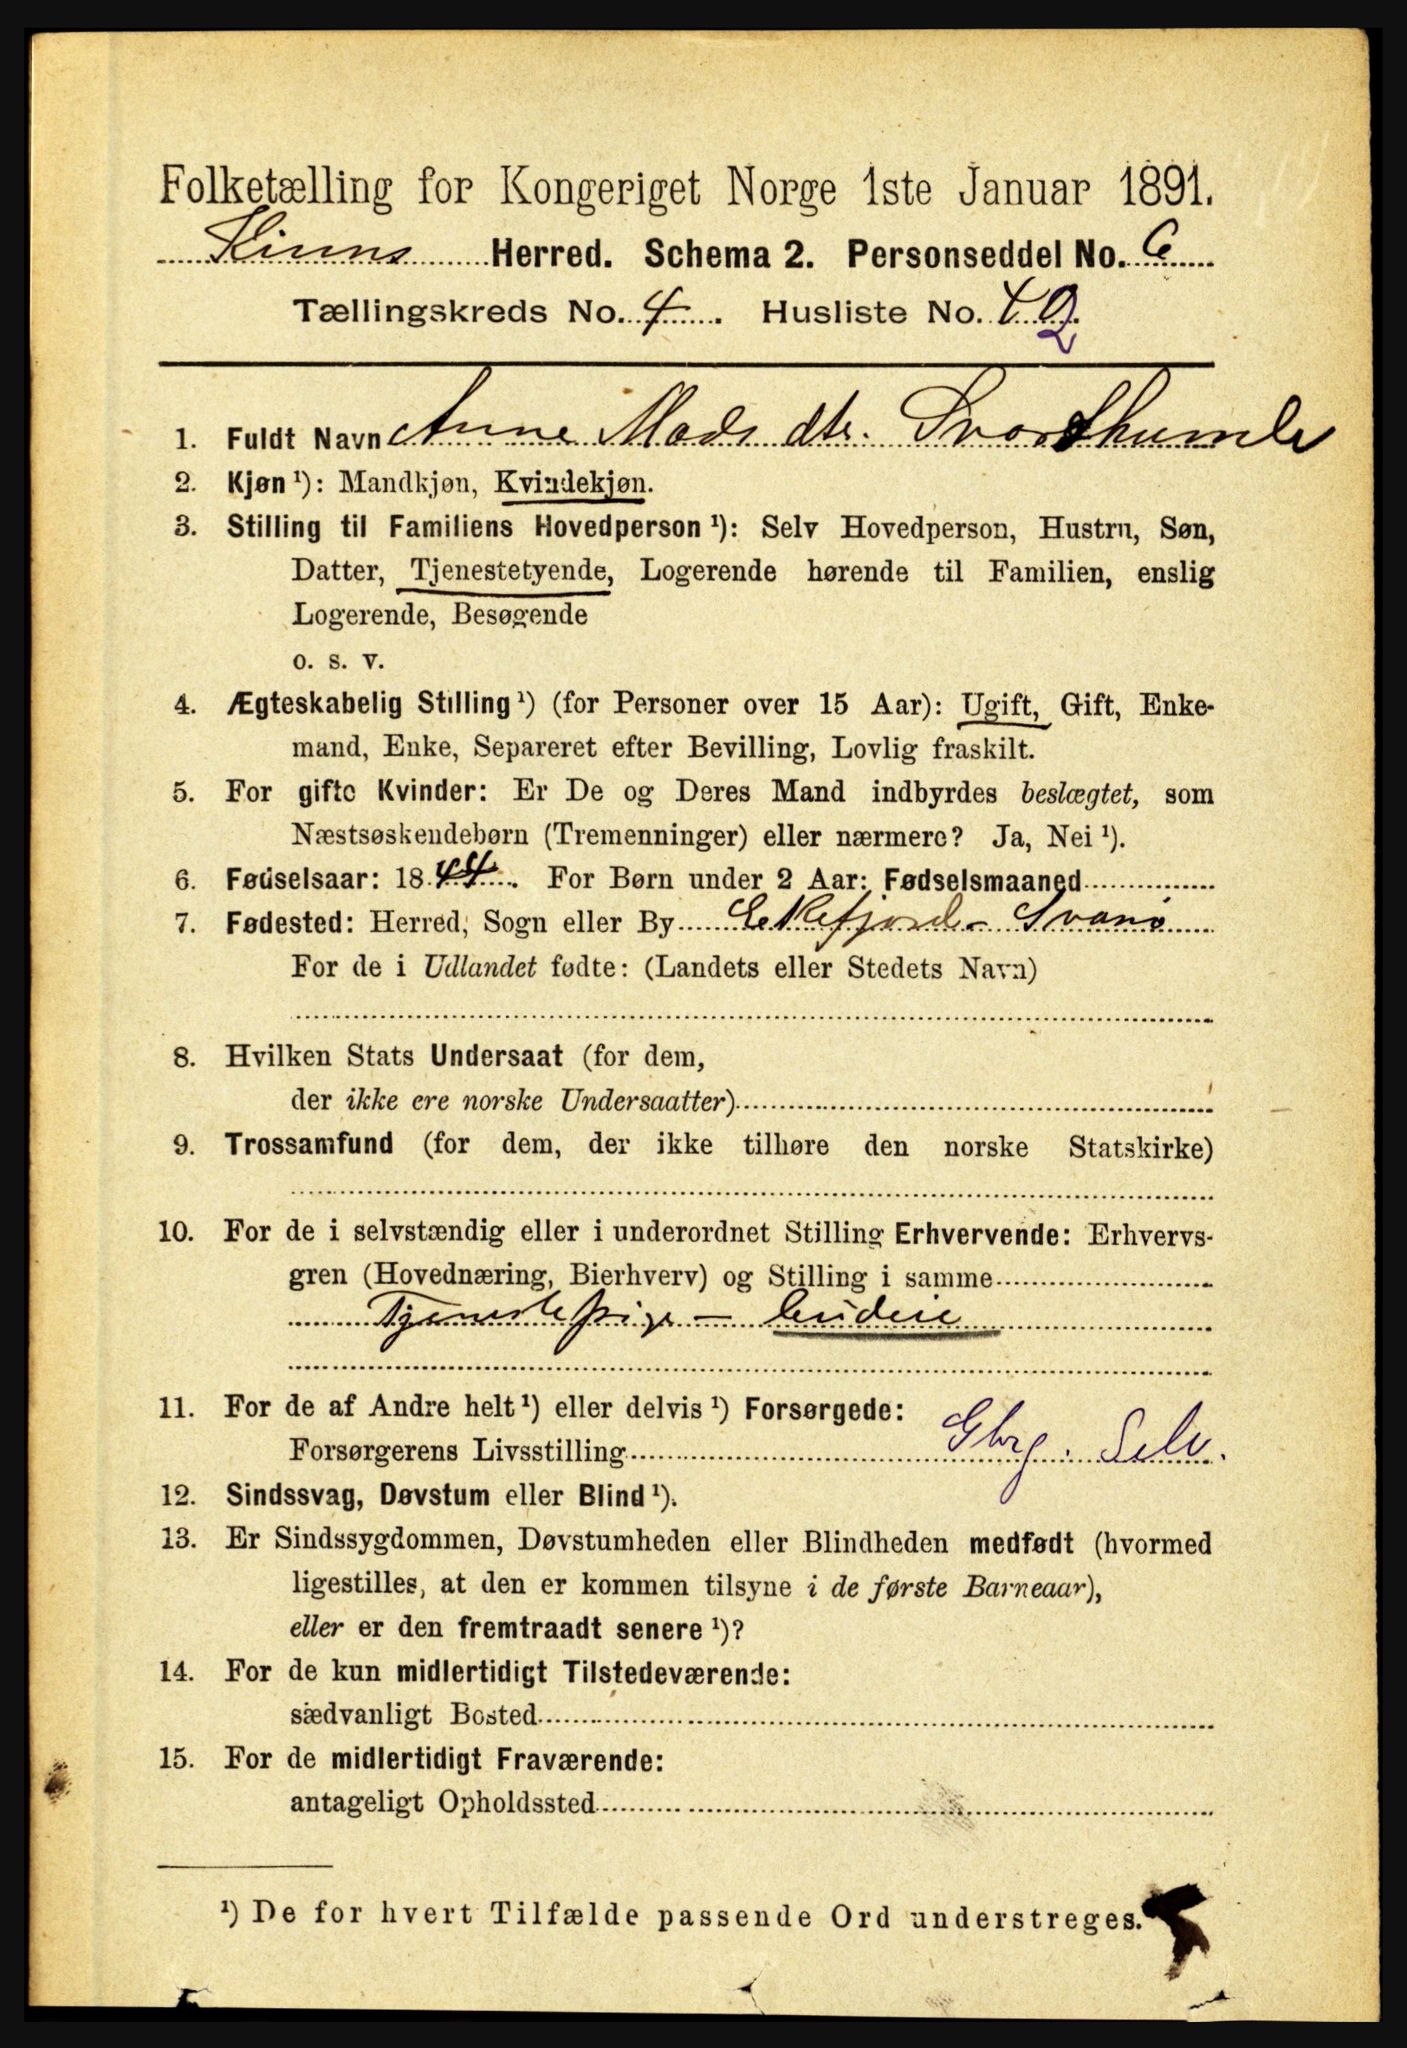 Folketælling for Kongeriget Norge 1ste Januar 1891.
Kinns Herred. Schema 2. Personseddel No. 6
Tællingskreds No. 4. Husliste No.
1. Fuldt Navn Anne Mads dtr. Svardhumle
2. Kjøn ¹): Mandkjøn, Kvindekjøn.
3. Stilling til Familiens Hovedperson ¹): Selv Hovedperson, Hustru, Søn,
Datter, Tjenestetyende, Logerende hørende til Familien, enslig
Logerende, Besøgende
o. s. v.
4. Ægteskabelig Stilling ¹) (for Personer over 15 Aar): Ugift, Gift, Enke-
mand, Enke, Separeret efter Bevilling, Lovlig fraskilt.
5. For gifte Kvinder: Er De og Deres Mand indbyrdes beslægtet, som
Næstsøskendebørn (Tremenninger) eller nærmere? Ja, Nei ¹).
6. Fødselsaar: 1844. For Børn under 2 Aar: Fødselsmaaned
7. Fødested: Herred, Sogn eller By Eikefjord - Svanø
For de i Udlandet fødte: (Landets eller Stedets Navn)
8. Hvilken Stats Undersaat (for dem,
der ikke ere norske Undersaatter)
9. Trossamfund (for dem, der ikke tilhøre den norske Statskirke)
10. For de i selvstændig eller i underordnet Stilling Erhvervende: Erhvervs-
gren (Hovednæring, Bierhverv) og Stilling i samme
Tjenestepige - budeie
11. For de af Andre helt ¹) eller delvis ¹) Forsørgede:
Forsørgerens Livsstilling Gbrg. Selv.
12. Sindssvag, Døvstum eller Blind ¹).
13. Er Sindssygdommen, Døvstumheden eller Blindheden medfødt (hvormed
ligestilles, at den er kommen tilsyne i de første Barneaar),
eller er den fremtraadt senere ¹)?
14. For de kun midlertidigt Tilstedeværende:
sædvanligt Bosted
15. For de midlertidigt Fraværende:
antageligt Opholdssted
¹) De for hvert Tilfælde passende Ord understreges.